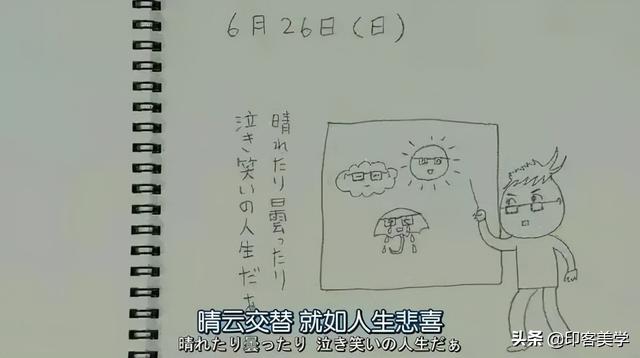 6月26日(日)
晴れたり曇ったり
泣き笑いの人生だぁ
晴云交替 就如人生悲喜
晴れたり曇ったり 泣き笑いの人生だぁ
头条 @印客美学